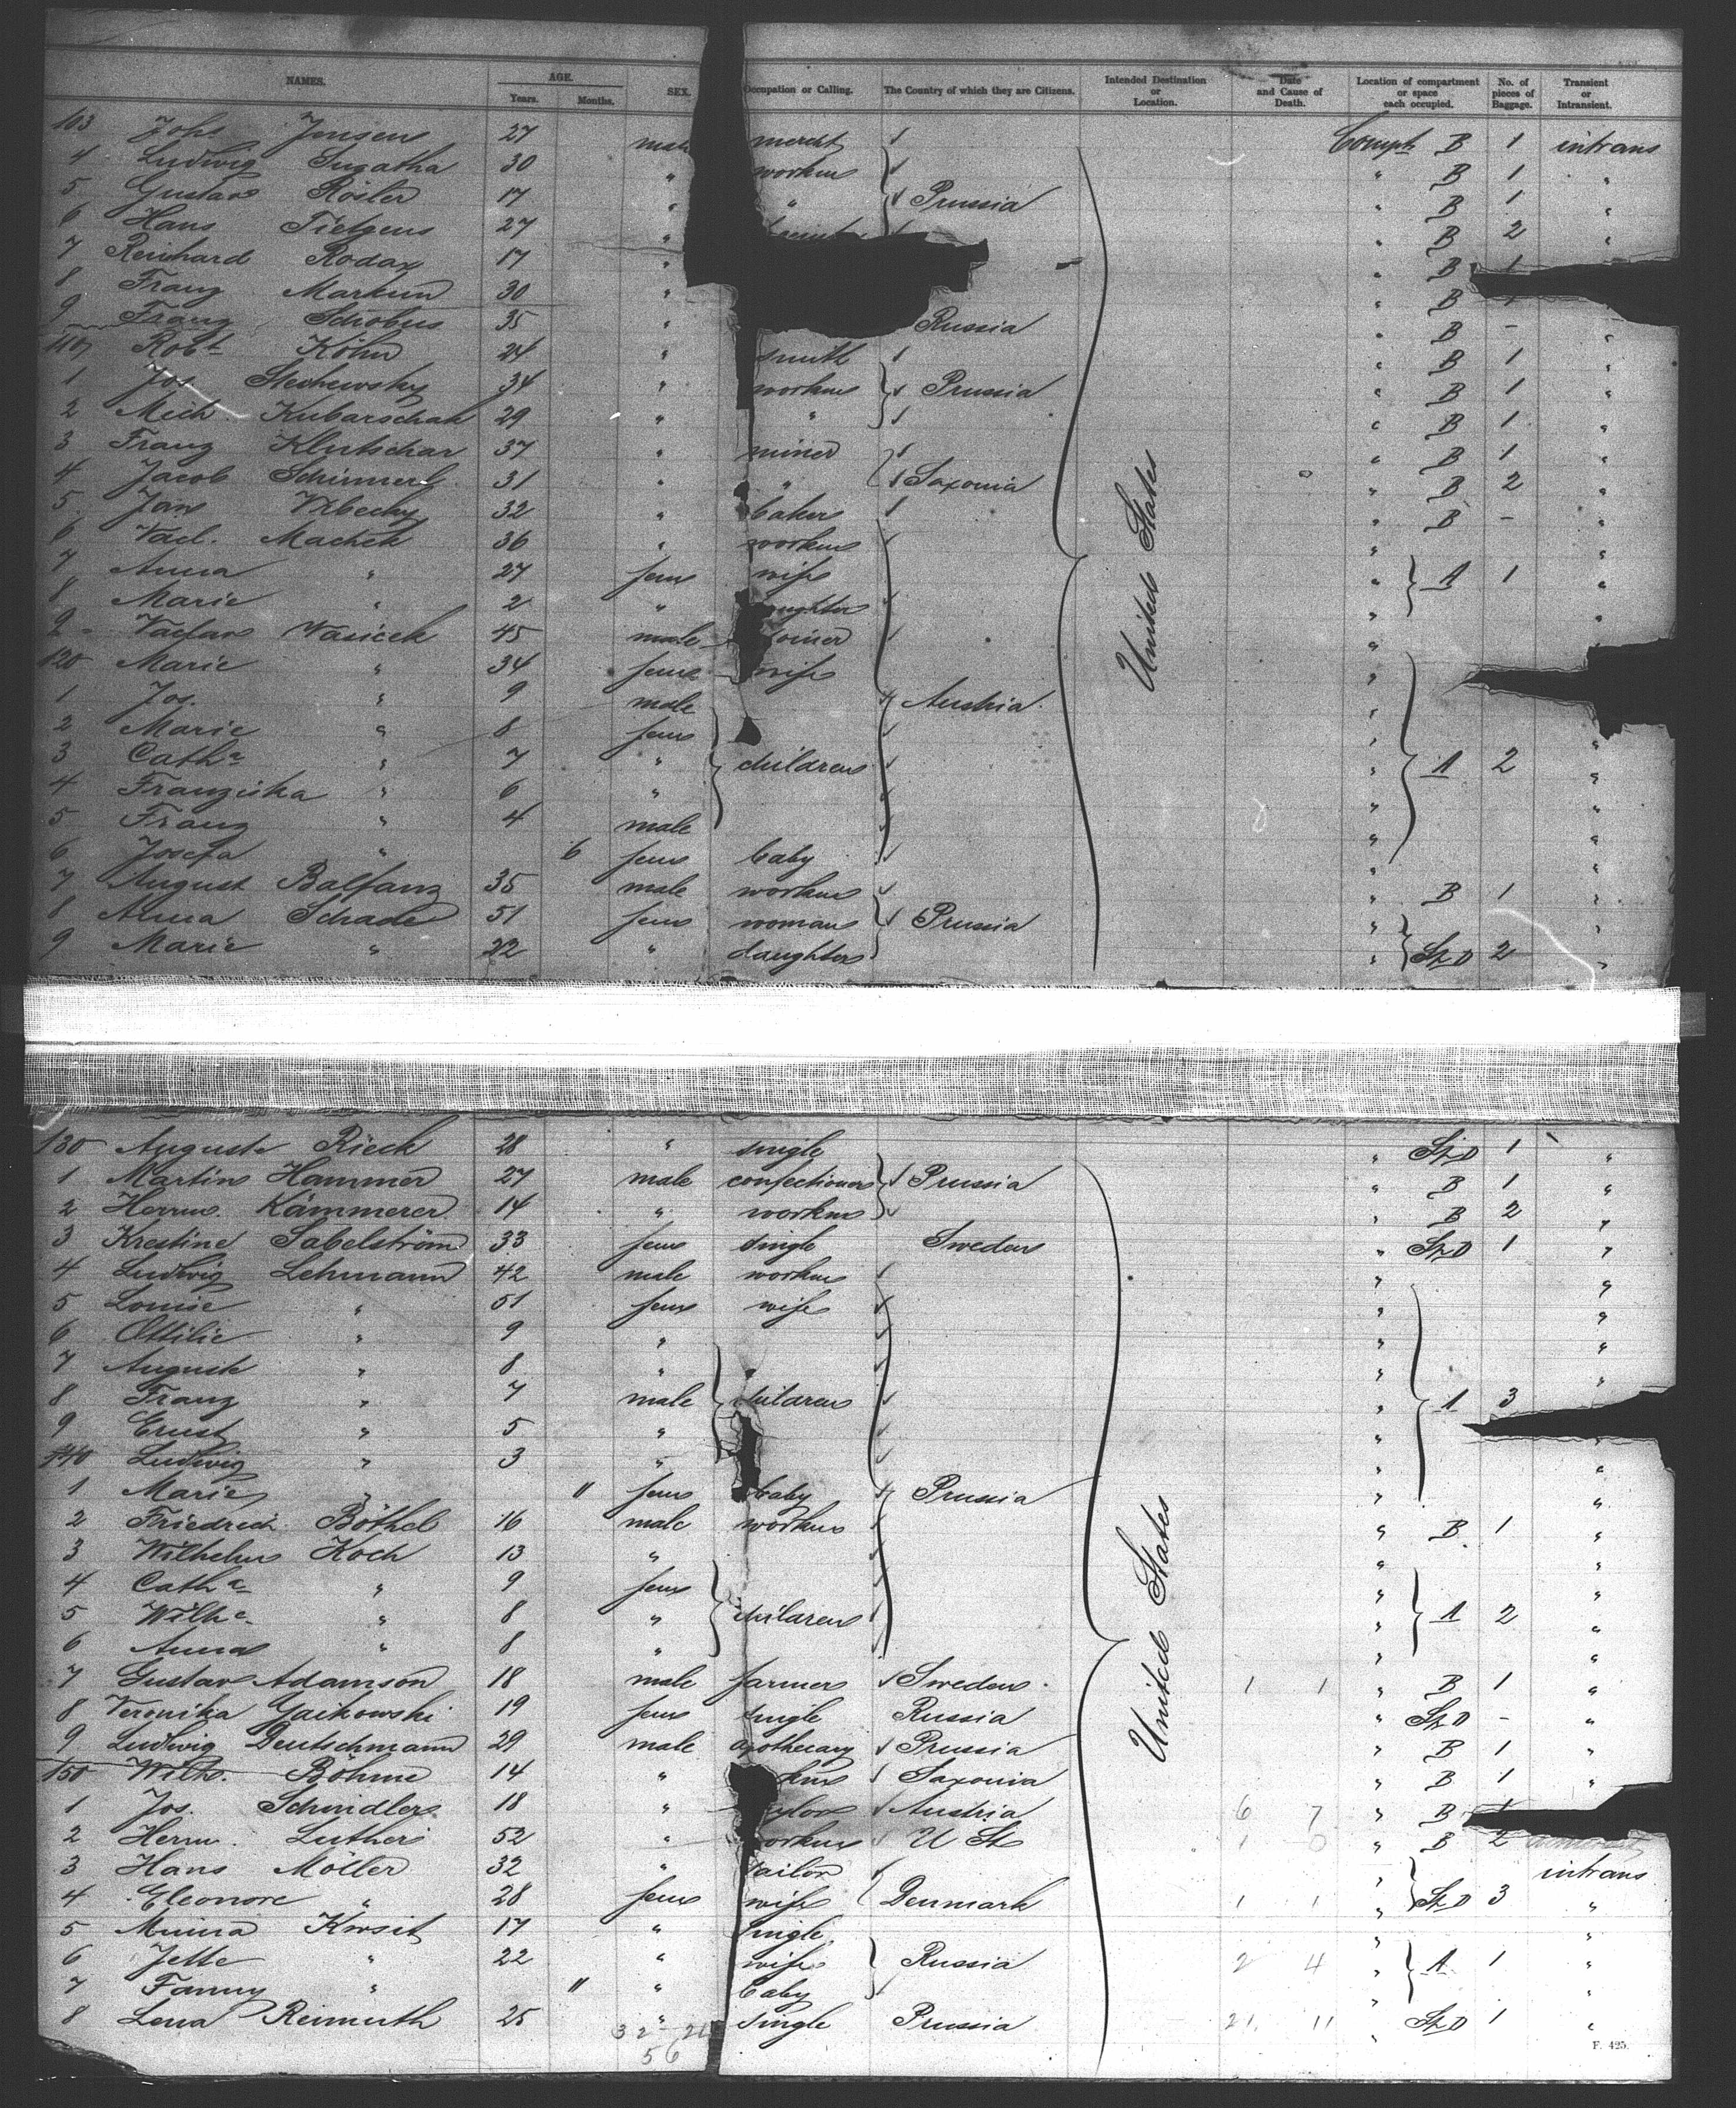 NAMES. AGE. Years. Months. SEX. Occupation or Calling. The Country of which they are Citizens. Intended Destination or Location. Date and Cause of Death. Location of compartment or space each occupied. No. of pieces of Baggage. Transient or Intransient.
103 Johs Jensen 27 male Compt B 1 intrans
4 Ludwig 30 " workm " B 1 "
5 Gustav Rösler 17 " " Prussia " B 1 "
6 Hans Tietgens 27 " " B 2 "
7 Reinhard Rodax 17 " " B 1
8 Franz 30 " " B
9 Franz Schobus 35 " Russia " B - "
110 Robt Köhn 24 " smith " B 1 "
1 Jos Stechewsky 34 " workm Prussia " B 1 "
2 Mich. Kubarschak 29 " " " B 1 "
3 Franz Klutschar 37 " miner " B 1 "
4 Jacob Schimmerl 31 " " Saxonia " B 2 "
5 Jan 32 " baker " B - "
6 Vacl. Machek 36 " workm " "
7 Anna " 27 fem wife " A 1 "
8 Marie " 2 " daughter " "
9 Vaclav Wasicek 45 male joiner "
120 Marie " 34 fem wife "
1 Jos. " 9 male Austria "
2 Marie " 8 fem " "
3 Catha " 7 " children " A 2 "
4 Franziska " 6 " " "
5 Franz " 4 male " "
6 Josefa " 6 fem baby " "
7 August Balfanz 35 male workm " B 1 "
8 Anna Schade 51 fem woman Prussia " "
9 Marie " 22 " daughter " St D 2 "
United States
130 Auguste Rieck 28 " single " St D 1 "
1 Martin Hammer 27 male confectioner Prussia " B 1 "
2 Herrm. Kämmerer 14 " workm " B 2 "
3 Krestine Sabelström 33 fem single Sweden " St D 1 "
4 Ludwig Lehmann 42 male workm " "
5 Louise " 51 fem wife " "
6 Ottilie " 9 " " "
7 Auguste " 8 " " "
8 Franz " 7 male children " A 3
9 Ernst " 5 " " "
140 Ludwig " 3 " " "
1 Marie " 11 fem baby Prussia " "
2 Friedrich Böthel 16 male workm " B 1 "
3 Wilhelm Koch 13 " " "
4 Catha " 9 fem " "
5 Wilhe " 8 " children " A 2 "
6 Anna " 8 " " "
7 Gustav Adamson 18 male farmer Sweden 1 1 " B 1 "
8 Veronika Gaikowski 19 fem single Russia " St D - "
9 Ludwig Deutschmann 29 male apothecary Prussia " B 1 "
150 Wilh. Böhme 14 " Saxonia " B 1 "
1 Jos. Schindler 18 " Austria 6 7 " B
2 Herm. Luther 52 " workm U St 1 0 " B 2
3 Hans Möller 32 " sailor " intrans
4 Eleonore " 28 fem wife Denmark 1 1 " St D 3 "
5 Minna 17 " single " "
6 Jette " 22 " wife Russia 2 4 " A 1 "
7 Fanny " 11 " baby " "
8 Lena Reimuth 25 " single Prussia 21 11 " St D 1 "
United States
32 21
56
F. 425.